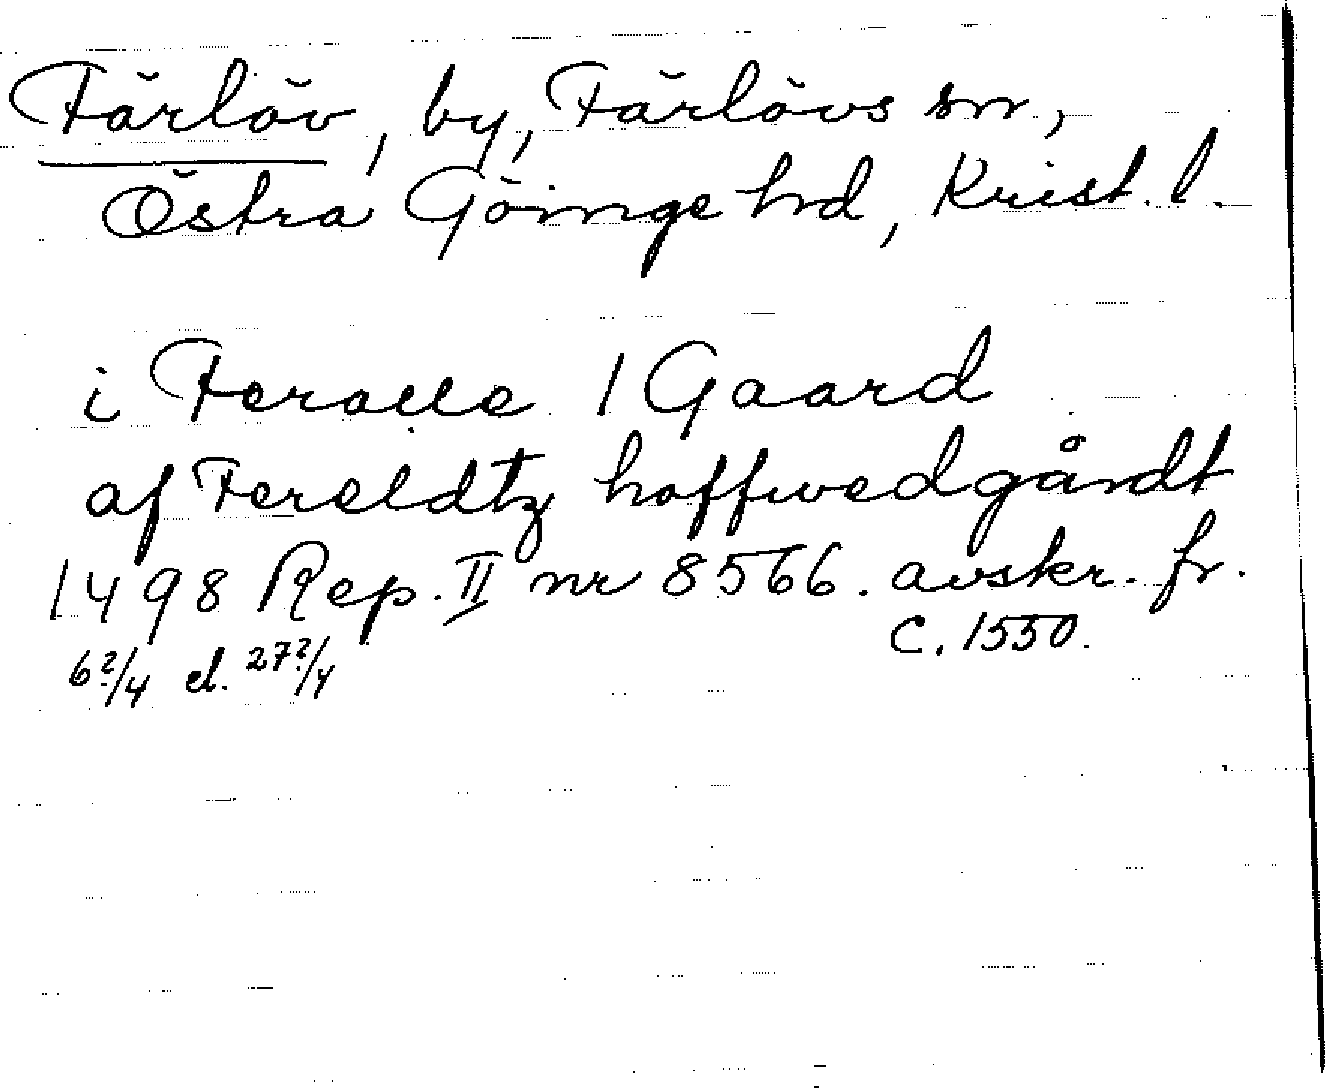 Färlöv, by, Färlövs sn,
Östra Göinge hd, Krist. l.
i Feralle 1 Gaard
af Fereldtz hoffwedgårdt
1498 Rep. II nr 8566. avskr. fr.
c. 1550.
6?/4 el. 27?/4